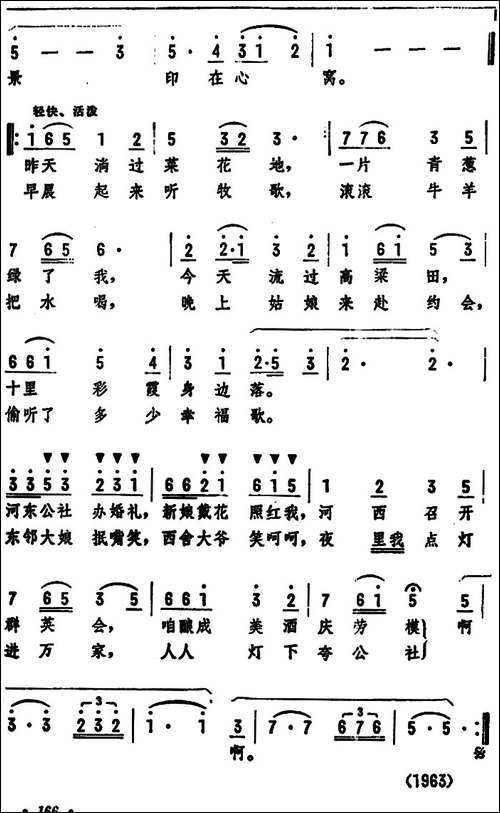 5 — — 3 5· 4 3 1 2 1 — — —
景 印在心 窝。
轻快、活泼
1 6 5 1 2 5 3 2 3· 7 7 6 3 5
昨天 淌过菜 花 地, 一片 青葱
早晨 起来听 牧 歌, 滚滚 牛羊
7 6 5 6· 2 2·1 3 2 1 6 1 5 3
绿了 我, 今天 流过高粱 田,
把水 喝, 晚上 姑娘来赴 约会,
6 6 1 5 4 3 1 2·5 3 2· 2·
十里 彩霞身边落。
偷听了 多少幸福歌。
3 3 5 3 2 3 1 6 6 2 1 6 1 5 1 2 3 5
河东公社 办婚礼, 新娘戴花 照红我, 河 西 召开
东邻大娘 抿嘴笑, 西舍大爷 笑呵呵, 夜 里我 点灯
7 6 5 3 5 6 6 1 3 2 7 6 1 5 5
群英 会, 咱酿成 美酒庆劳模 啊
进万 家, 人人 灯下夸公社
3·3 3 2 3 2 1·1 3 7·7 3 6 7 6 5·5·
啊。
(1963)
· 166 ·